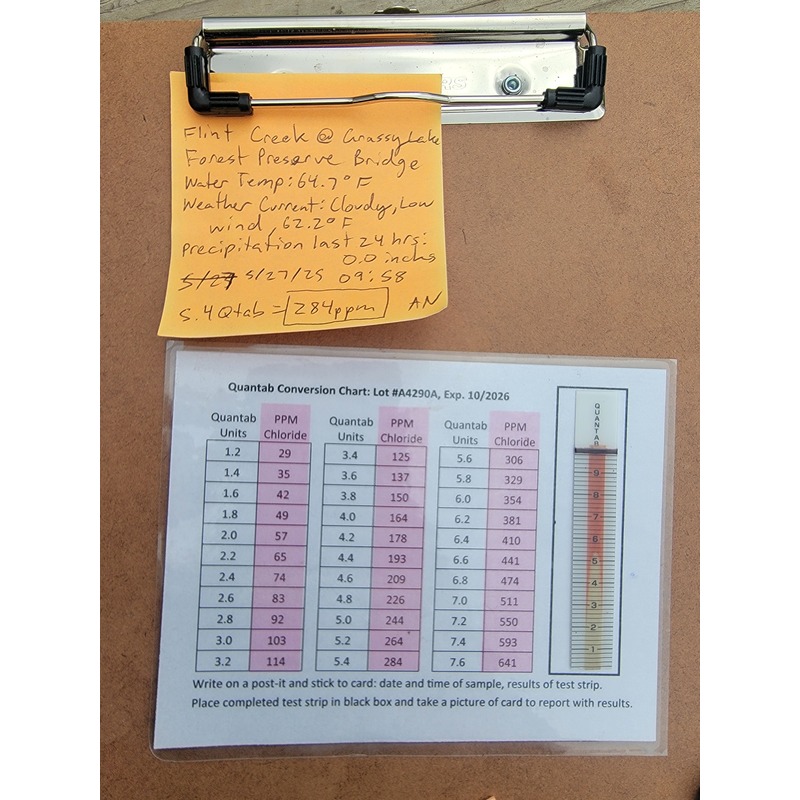 Flint Creek @ Grassy Lake
Forest Preserve Bridge
Water Temp: 64.7° F
Weather Current: Cloudy, Low
wind, 62.2° F
Precipitation last 24 hrs:
0.0 inchs
5/27/25 09:58
5.4 Qtab = 284ppm AN
Quantab Conversion Chart: Lot #A4290A, Exp. 10/2026
Quantab Units PPM Chloride Quantab Units PPM Chloride Quantab Units PPM Chloride
1.2 29 3.4 125 5.6 306
1.4 35 3.6 137 5.8 329
1.6 42 3.8 150 6.0 354
1.8 49 4.0 164 6.2 381
2.0 57 4.2 178 6.4 410
2.2 65 4.4 193 6.6 441
2.4 74 4.6 209 6.8 474
2.6 83 4.8 226 7.0 511
2.8 92 5.0 244 7.2 550
3.0 103 5.2 264 7.4 593
3.2 114 5.4 284 7.6 641
QUANTAB
9
8
7
6
5
4
3
2
1
Write on a post-it and stick to card: date and time of sample, results of test strip.
Place completed test strip in black box and take a picture of card to report with results.